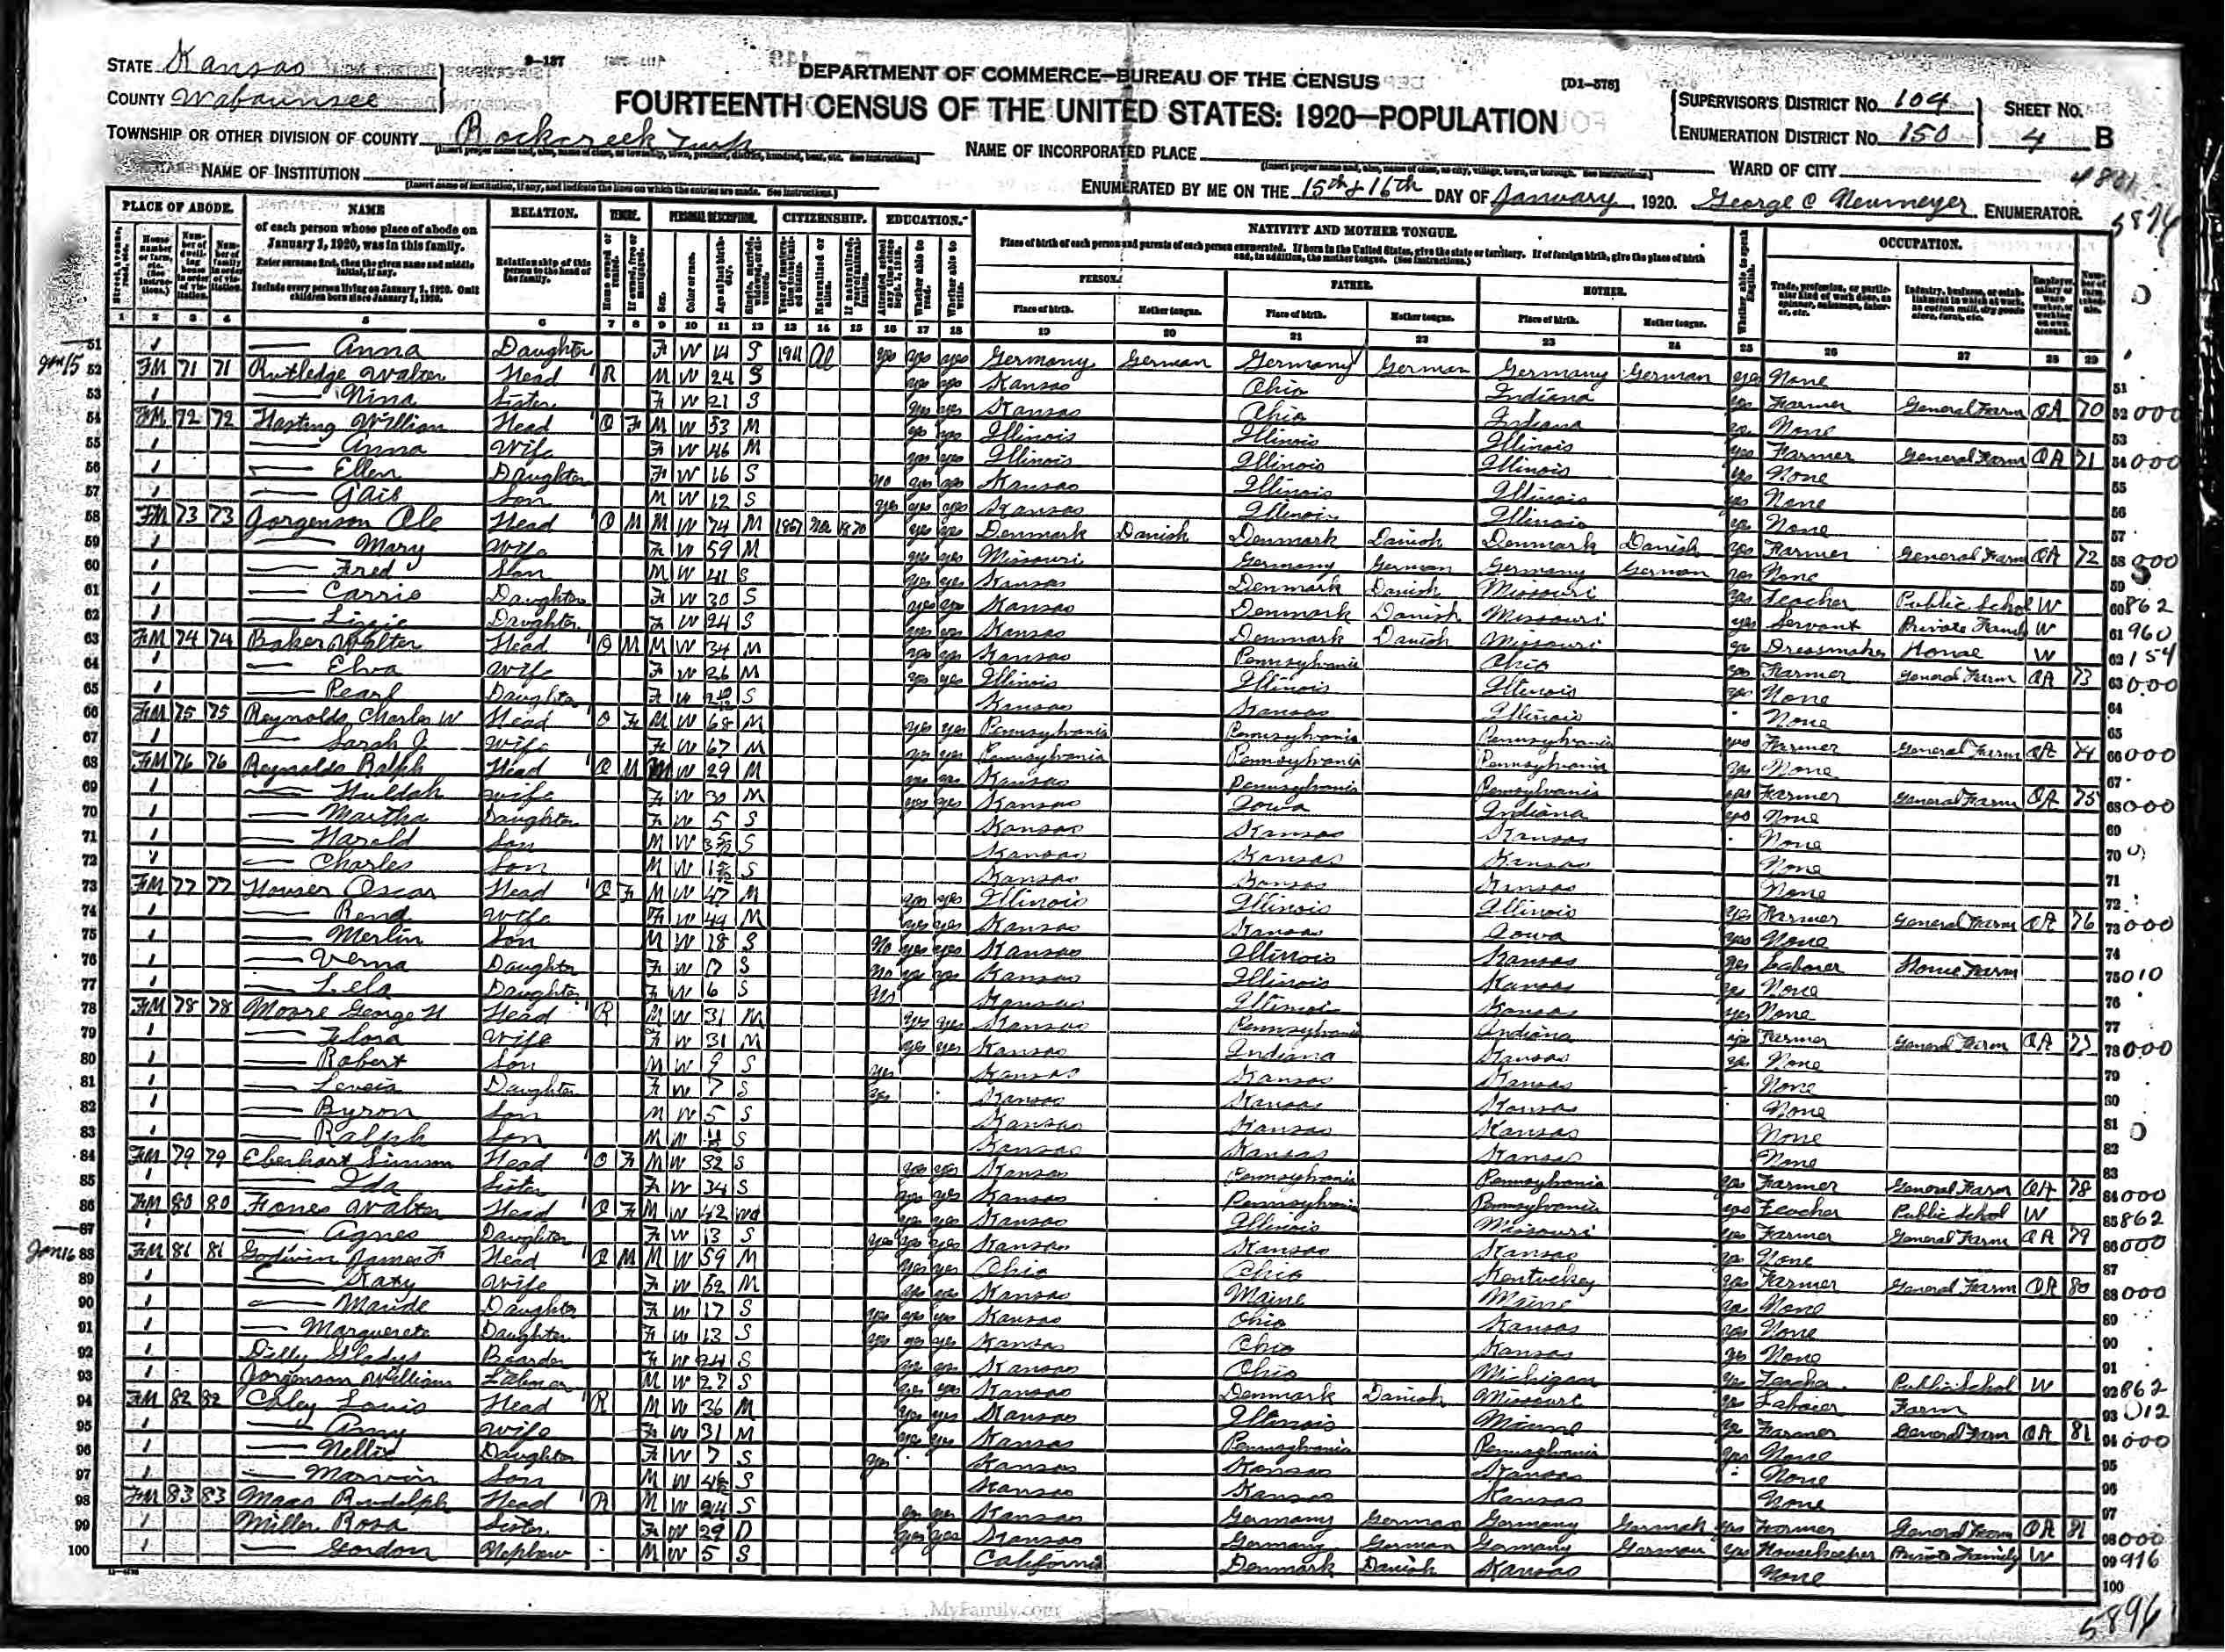 STATE Kansas 9-137 DEPARTMENT OF COMMERCE—BUREAU OF THE CENSUS [D1-578]
COUNTY Wabaunsee FOURTEENTH CENSUS OF THE UNITED STATES: 1920—POPULATION SUPERVISOR'S DISTRICT NO. 104 SHEET NO.
TOWNSHIP OR OTHER DIVISION OF COUNTY Rockcreek Twp NAME OF INCORPORATED PLACE ENUMERATION DISTRICT NO. 150 4 B
NAME OF INSTITUTION ENUMERATED BY ME ON THE 15th & 16th DAY OF January, 1920. George C Neumeyer ENUMERATOR. WARD OF CITY
PLACE OF ABODE. NAME RELATION. TENURE. PERSONAL DESCRIPTION. CITIZENSHIP. EDUCATION. NATIVITY AND MOTHER TONGUE. OCCUPATION.
of each person whose place of abode on January 1, 1920, was in this family.
Enter surname first, then the given name and middle initial, if any.
Include every person living on January 1, 1920. Omit children born since January 1, 1920.
Relationship of this person to the head of the family.
Place of birth of each person and parents of each person enumerated. If born in the United States, give the state or territory. If of foreign birth, give the place of birth and, in addition, the mother tongue. (See Instructions.)
PERSON. FATHER. MOTHER.
Place of birth. Mother tongue. Place of birth. Mother tongue. Place of birth. Mother tongue.
1 2 3 4 5 6 7 8 9 10 11 12 13 14 15 16 17 18 19 20 21 22 23 24 25 26 27 28 29
51 Anna Daughter F W 14 S 1911 Al yes yes yes Germany German Germany German Germany German yes None
Jan 15 52 FM 71 71 Rutledge Walter Head R M W 24 S yes yes Kansas Ohio Indiana yes Farmer General Farm OA 70
53 Nina Sister F W 21 S yes yes Kansas Ohio Indiana yes None
54 FM 72 72 Hasting William Head O F M W 53 M yes yes Illinois Illinois Illinois yes Farmer General Farm OA 71
55 Anna Wife F W 46 M yes yes Illinois Illinois Illinois yes None
56 Ellen Daughter F W 16 S no yes yes Kansas Illinois Illinois yes None
57 Gail Son M W 12 S yes yes yes Kansas Illinois Illinois yes None
58 FM 73 73 Jorgenson Ole Head O M M W 74 M 1867 Na 1870 yes yes Denmark Danish Denmark Danish Denmark Danish yes Farmer General Farm OA 72
59 Mary Wife F W 59 M yes yes Missouri Germany German Germany German yes None
60 Fred Son M W 41 S yes yes Kansas Denmark Danish Missouri yes Teacher Public School W 862
61 Carrie Daughter F W 30 S yes yes Kansas Denmark Danish Missouri yes Servant Private Family W 960
62 Lizzie Daughter F W 24 S yes yes Kansas Denmark Danish Missouri yes Dressmaker House W 154
63 FM 74 74 Baker Walter Head O M M W 34 M yes yes Kansas Pennsylvania Ohio yes Farmer General Farm OA 73 000
64 Elva Wife F W 26 M yes yes Illinois Illinois Illinois yes None
65 Pearl Daughter F W S Kansas Kansas Illinois None
66 FM 75 75 Reynolds Charles W Head O F M W 68 M yes yes Pennsylvania Pennsylvania Pennsylvania yes Farmer General Farm OA 74 000
67 Sarah J Wife F W 67 M yes yes Pennsylvania Pennsylvania Pennsylvania yes None
68 FM 76 76 Reynolds Ralph Head O M M W 29 M yes yes Kansas Pennsylvania Pennsylvania yes Farmer General Farm OA 75 000
69 Huldah Wife F W 30 M yes yes Kansas Iowa Indiana yes None
70 Martha Daughter F W 5 S Kansas Kansas Kansas None
71 Harold Son M W S Kansas Kansas Kansas None
72 Charles Son M W S Kansas Kansas Kansas None
73 FM 77 77 Houser Oscar Head O F M W 47 M yes yes Illinois Illinois Illinois yes Farmer General Farm OA 76 000
74 Rena Wife F W 44 M yes yes Kansas Kansas Iowa yes None
75 Merlin Son M W 18 S No yes yes Kansas Illinois Kansas yes Laborer Home Farm 010
76 Verna Daughter F W S No yes yes Kansas Illinois Kansas yes None
77 Lela Daughter F W 6 S Kansas Illinois Kansas yes None
78 FM 78 78 Moore George H Head R M W 31 M yes yes Kansas Pennsylvania Indiana yes Farmer General Farm OA 77 000
79 Wife F W 31 M yes yes Kansas Indiana Kansas yes None
80 Robert Son M W 9 S yes Kansas Kansas Kansas None
81 Daughter F W 7 S yes Kansas Kansas Kansas None
82 Byron Son M W 5 S Kansas Kansas Kansas None
83 Ralph Son M W S Kansas Kansas Kansas None
84 FM 79 79 Eberhart Simon Head O F M W 32 S yes yes Kansas Pennsylvania Pennsylvania yes Farmer General Farm OA 78 000
85 Ida Sister F W 34 S yes yes Kansas Pennsylvania Pennsylvania yes Teacher Public School W 862
86 FM 80 80 Fones Walter Head O F M W 42 Wd yes yes Kansas Illinois Missouri yes Farmer General Farm OA 79 000
87 Agnes Daughter F W 13 S yes yes yes Kansas Kansas Kansas yes None
Jan 16 88 FM 81 81 Godwin James F Head O M M W 59 M yes yes Ohio Ohio Kentuckey yes Farmer General Farm OA 80 000
89 Katy Wife F W 52 M yes yes Kansas Maine Maine yes None
90 Maude Daughter F W 17 S yes yes yes Kansas Ohio Kansas yes None
91 Marguerete Daughter F W 13 S yes yes yes Kansas Ohio Kansas yes None
92 Dilly Gladys Boarder F W 24 S yes yes Kansas Ohio Michigan yes Teacher Public School W 862
93 Jorgenson William Laborer M W 27 S yes yes Kansas Denmark Danish Missouri yes Laborer Farm 012
94 FM 82 82 Cbley Louis Head R M W 36 M yes yes Kansas Illinois yes Farmer General Farm OA 81 000
95 Amy Wife F W 31 M yes yes Kansas Pennsylvania Pennsylvania yes None
96 Nellie Daughter F W 7 S yes Kansas Kansas Kansas None
97 Marvin Son M W S Kansas Kansas Kansas None
98 FM 83 83 Maas Rudolph Head R M W 24 S yes yes Kansas Germany German Germany German yes Farmer General Farm OA 81 000
99 Miller Rosa Sister F W 29 D yes yes Kansas Germany German Germany German yes Housekeeper Private Family W 916
100 Gordon Nephew M W 5 S California Denmark Danish Kansas None
MyFamily.com
5896